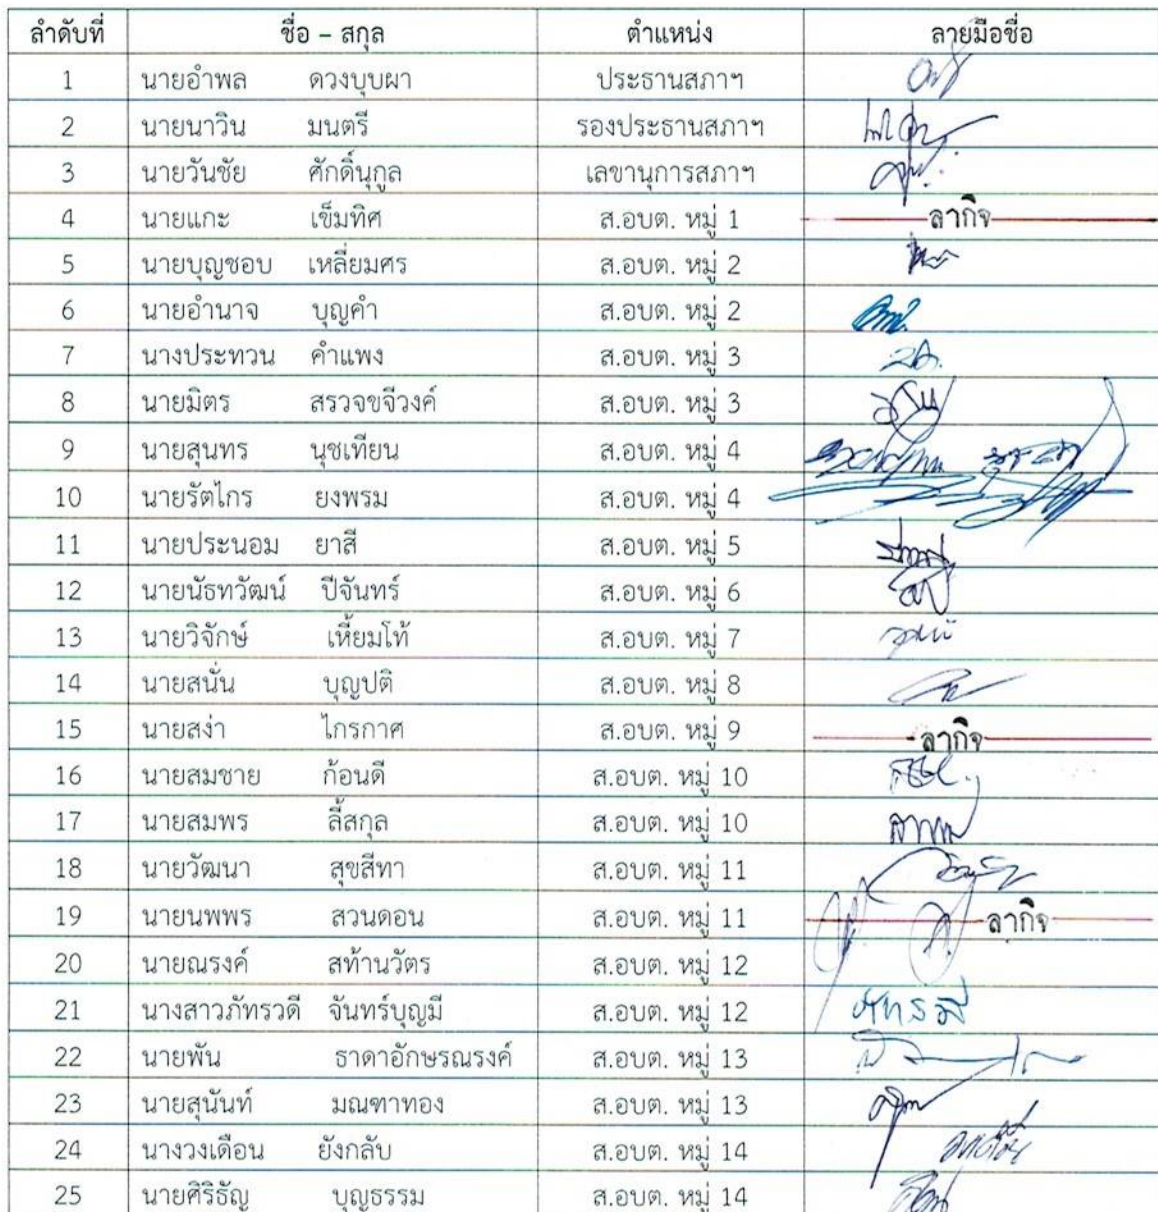 ลำดับที่ ชื่อ – สกุล ตำแหน่ง ลายมือชื่อ
1 นายอำพล ดวงบุบผา ประธานสภาฯ
2 นายนาวิน มนตรี รองประธานสภาฯ
3 นายวันชัย ศักดิ์นุกูล เลขานุการสภาฯ
4 นายแกะ เข็มทิศ ส.อบต. หมู่ 1 ลากิจ
5 นายบุญชอบ เหลี่ยมศร ส.อบต. หมู่ 2
6 นายอำนาจ บุญคำ ส.อบต. หมู่ 2
7 นางประทวน คำแพง ส.อบต. หมู่ 3
8 นายมิตร สรวจขจีวงค์ ส.อบต. หมู่ 3
9 นายสุนทร นุชเทียน ส.อบต. หมู่ 4
10 นายรัตไกร ยงพรม ส.อบต. หมู่ 4
11 นายประนอม ยาสี ส.อบต. หมู่ 5
12 นายนัธทวัฒน์ ปีจันทร์ ส.อบต. หมู่ 6
13 นายวิจักษ์ เหี้ยมโท้ ส.อบต. หมู่ 7
14 นายสนั่น บุญปติ ส.อบต. หมู่ 8
15 นายสง่า ไกรกาศ ส.อบต. หมู่ 9 ลากิจ
16 นายสมชาย ก้อนดี ส.อบต. หมู่ 10
17 นายสมพร ลี้สกุล ส.อบต. หมู่ 10
18 นายวัฒนา สุขสีทา ส.อบต. หมู่ 11
19 นายนพพร สวนดอน ส.อบต. หมู่ 11 ลากิจ
20 นายณรงค์ สท้านวัตร ส.อบต. หมู่ 12
21 นางสาวภัทรวดี จันทร์บุญมี ส.อบต. หมู่ 12
22 นายพัน ธาดาอักษรณรงค์ ส.อบต. หมู่ 13
23 นายสุนันท์ มณฑาทอง ส.อบต. หมู่ 13
24 นางวงเดือน ยังกลับ ส.อบต. หมู่ 14
25 นายศิริธัญ บุญธรรม ส.อบต. หมู่ 14